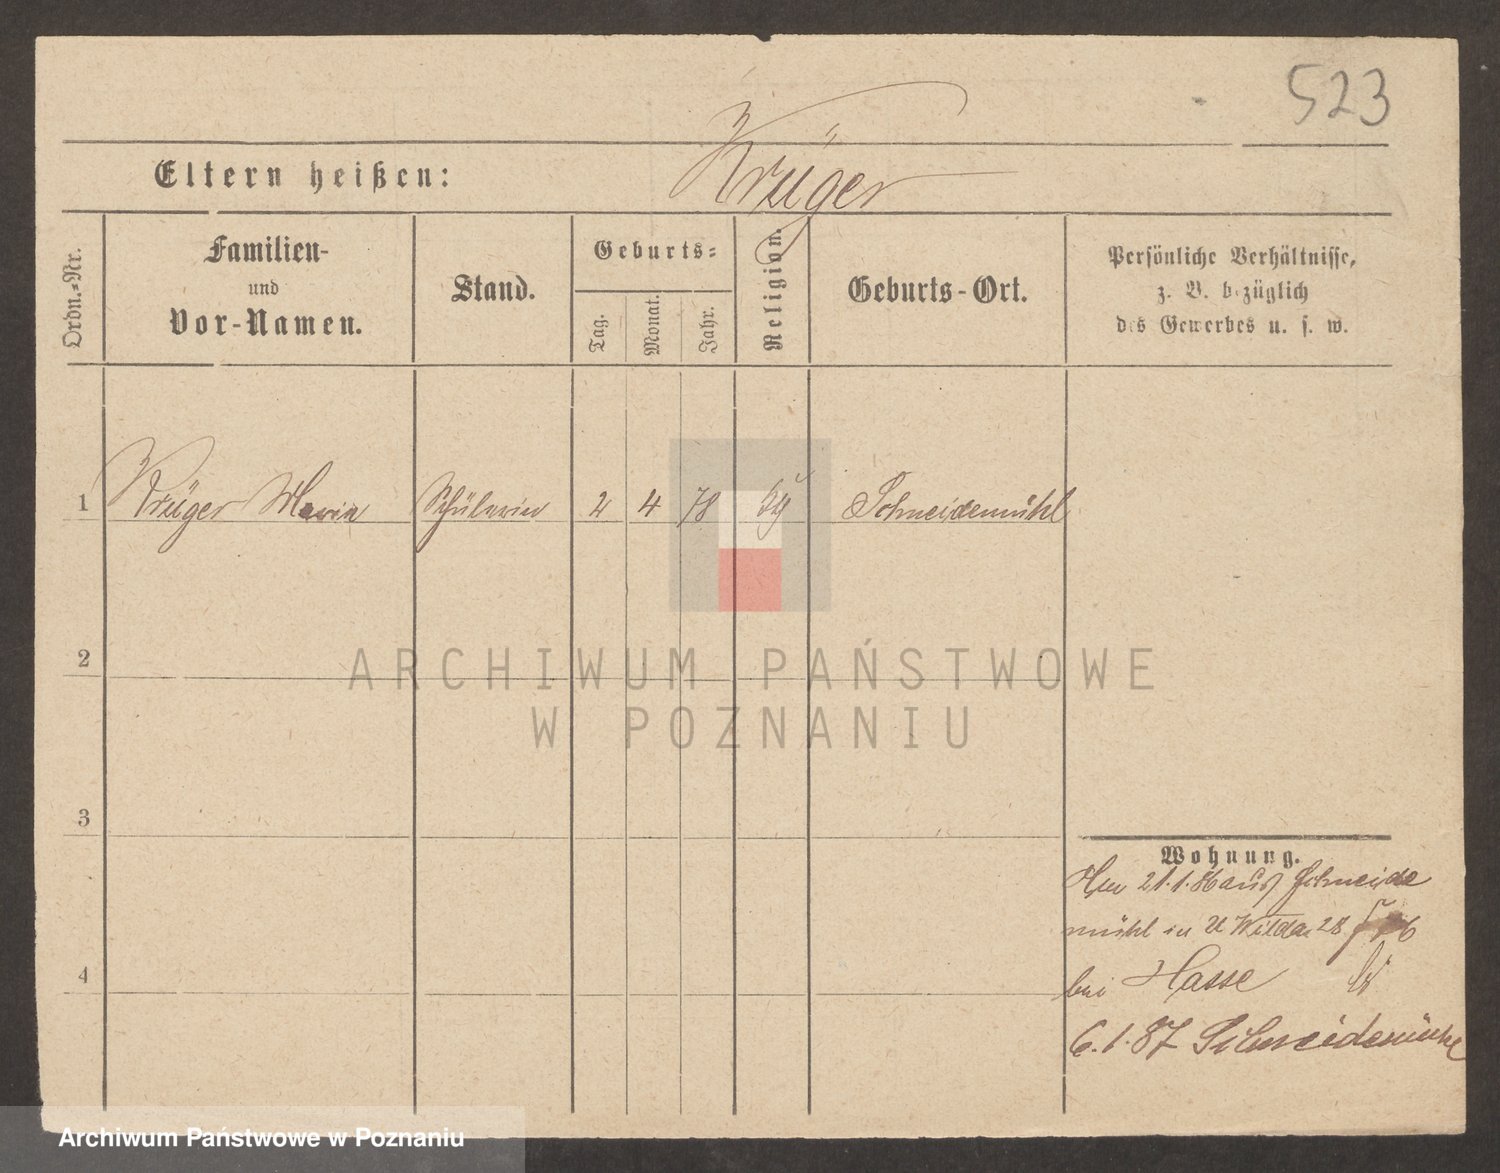 523
Krüger
Eltern heißen:
Ordn.=Nr.
Familien-
und
Vor-Namen.
Stand.
Geburts=
Tag.
Monat.
Jahr.
Religion.
Geburts-Ort.
Persönliche Verhältnisse,
z. B. bezüglich
des Gewerbes u. s. w.
1 Krüger Maria Schülerin 2 4 78 Schneidemühl
2
ARCHIWUM PAŃSTWOWE
W POZNANIU
3
Wohnung.
21.1.86 aus Schneide
mühl in U Wilda 28
4
bei Hasse
6.1.87 Schneidemühl
Archiwum Państwowe w Poznaniu